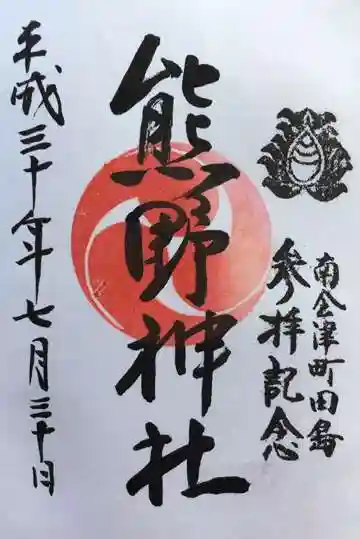 南会津町田島
参拝記念
熊野神社
平成三十年七月三十日